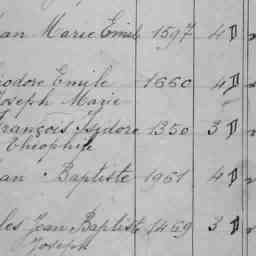 an Marie Emile 1597 4 D
odore Emile 1660 4 D
Joseph Marie
François Isydore 1350 3 D
Théophile
an Baptiste 1961 4 D
les Jean Baptiste 1459 3 D
Joseph